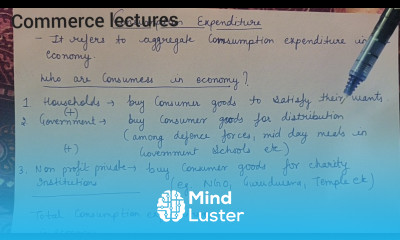 Commerce lectures
Consumption Expenditure
- It refers to aggregate Consumption expenditure in
economy
Who are Consumers in economy?
1 Households → buy Consumer goods to satisfy their wants
(+)
2 Government → buy Consumer goods for distribution
(among defence forces, mid day meals in
(+) Government Schools etc.)
3. Non profit private → buy Consumer goods for charity
Institutions (eg. NGO, Gurudwara, Temple etc)
Total Consumption
Mind
Luster